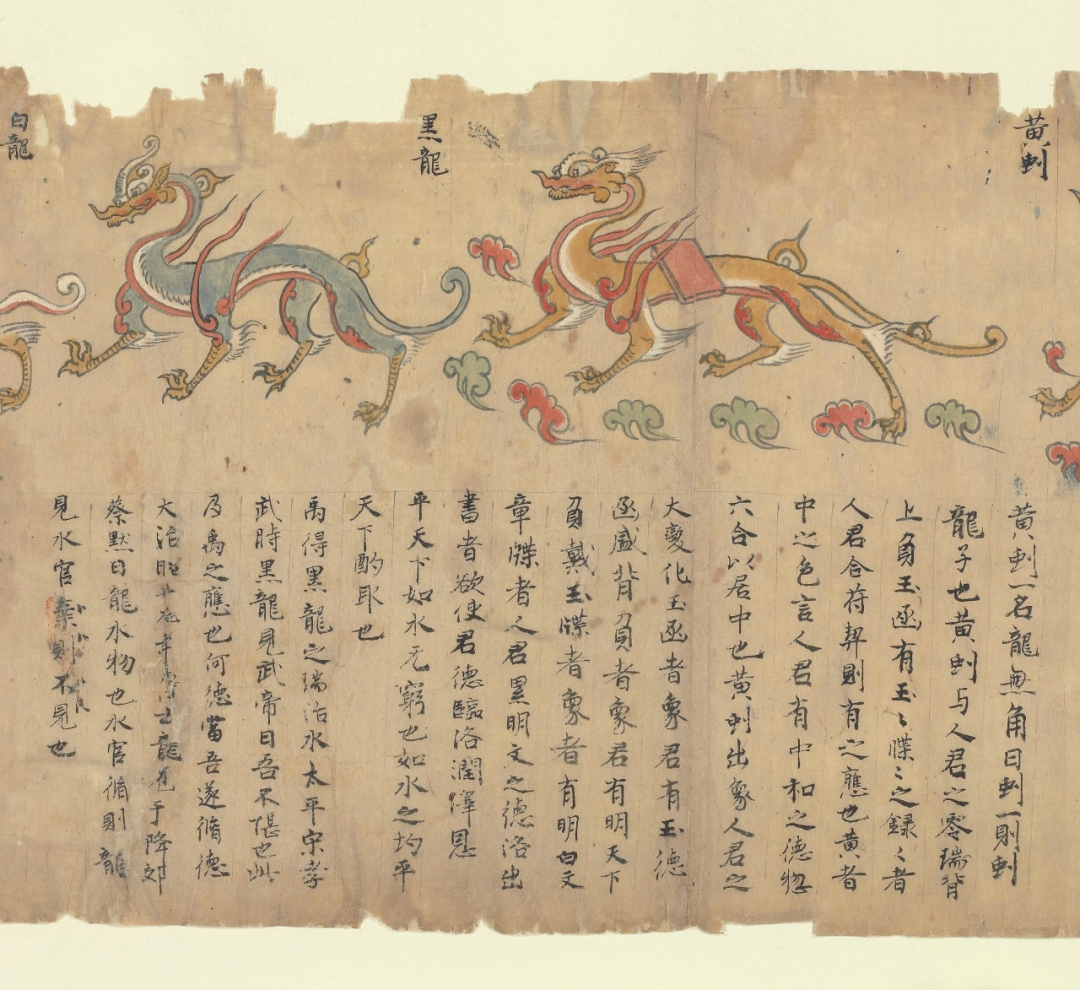 黄虬
黑龍
白龍
黄虬一名龍無角曰虬一則虬
龍子也黄虬与人君之零瑞背
上負玉凾有玉〻牒〻之録〻者
人君合符契則有之應也黄者
中之色言人君有中和之德惣
六合以居中也黄虬出象人君之
大變化玉凾者象君有玉德
凾盛背負者象君有明天下
負戴玉牒者象者有明白文
章牒者人君黑明文之德洛出
書者欲使君德臨洛潤澤恩
平天下如水无窮也如水之均平
天下酌取也
禹得黑龍之瑞治水太平宋孝
武時黑龍見武帝曰吾不堪也此
及禹之應也何德當吾遂脩德
大治昭廿九年龍見于降郊
蔡默曰龍水物也水官脩則龍
見水官棄則不見也